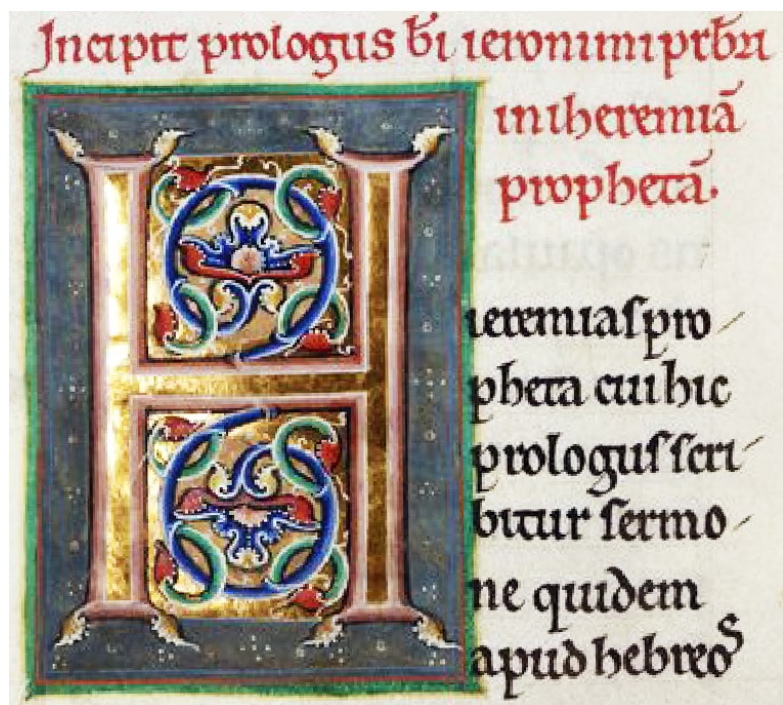 Incipit prologus bi ieronimi prbri
in iheremiā
prophetā.
H
ieremias pro
pheta cui hic
prologus scri
bitur sermo
ne quidem
apud hebreos